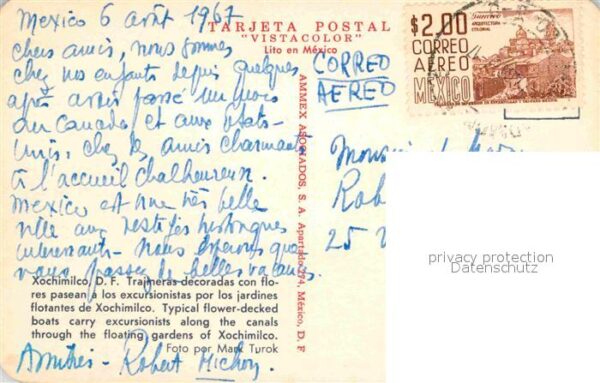 Mexico 6 août 1967
TARJETA POSTAL
"VISTACOLOR"
Lito en México
chers amis, nous sommes
chez nos enfants depuis quelques
après avoir passé un mois
au Canada et aux états-
unis, chez des amis charmants
à l'accueil chaleureux.
Mexico est une très belle
ville aux vestiges historiques
intéressants - nous espérons que
vous passez de belles vacances.
Xochimilco, D. F. Trajineras decoradas con flo-
res pasean a los excursionistas por los jardines
flotantes de Xochimilco. Typical flower-decked
boats carry excursionists along the canals
through the floating gardens of Xochimilco.
Foto por Mark Turok
Amitiés - Robert Michon
AMMEX ASOCIADOS, S. A. Apartado 274, México, D. F.
CORREO
AEREO
$2.00
CORREO
AEREO
MEXICO
ARQUITECTURA
COLONIAL
Monsieur et
Rob
25
privacy protection
Datenschutz